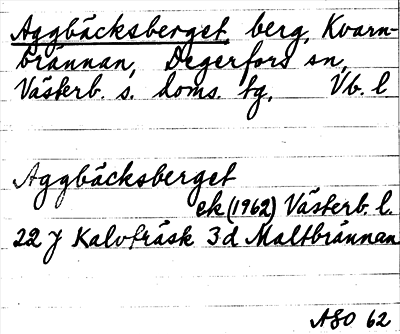 Aggbäcksberget, berg, Kvarn-
brännan, Degerfors sn,
Västerb. s. doms. tg, Vb. l
Aggbäcksberget
ek (1962) Västerb. l.
22 J Kalvträsk 3d Maltbrännan
ASO 62